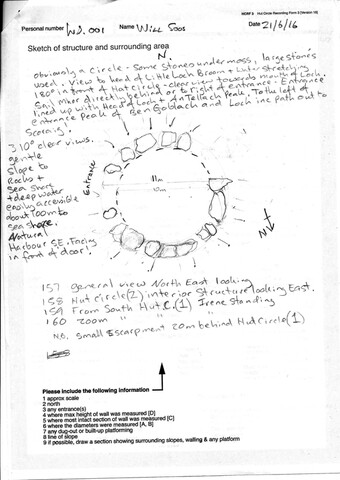 NOSAS Hut Circle Recording Form
Personal number ND.001 Name WILL SOOS Date 21/6/16
Sketch of structure and surrounding area
N.
obviously a circle - some stones under moss, large stones
used. View to head of Little Loch Broom + stretching
180° in front of Hut circle - clear view towards mouth of Loch.
Sail Mhor directly behind or to right of entrance - Entrance
lined up with Head of Loch + An Teallach Peak. To the left of
entrance Peak of Ben Goblach and Loch inc path out to
Scoraig.
310° clear views.
gentle
slope to
Rocks +
sea shore
+ deep water
easily accessible
about 100m to
sea shore.
Natural
Harbour SE. Facing
in front of door!
Entrance
11m
10m
N
157 general view North East looking
158 Hut circle (2) interior structure looking East.
159 From South Hut C. (1) Irene Standing
160 zoom " " (1)
N.B. small escarpment 20m behind Hut Circle (1)
Please include the following information
1 approx scale
2 north
3 any entrance(s)
4 where max height of wall was measured [D]
5 where most intact section of wall was measured [C]
6 where the diameters were measured [A, B]
7 any dug-out or built-up platforming
8 line of slope
9 if possible, draw a section showing surrounding slopes, walling & any platform